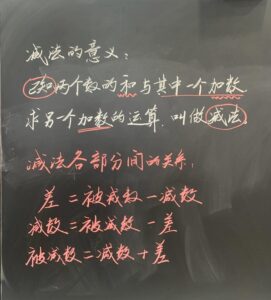 减法的意义：
已知两个数的和与其中一个加数
求另一个加数的运算,叫做减法.
减法各部分间的关系:
差=被减数-减数
减数=被减数-差
被减数=减数+差